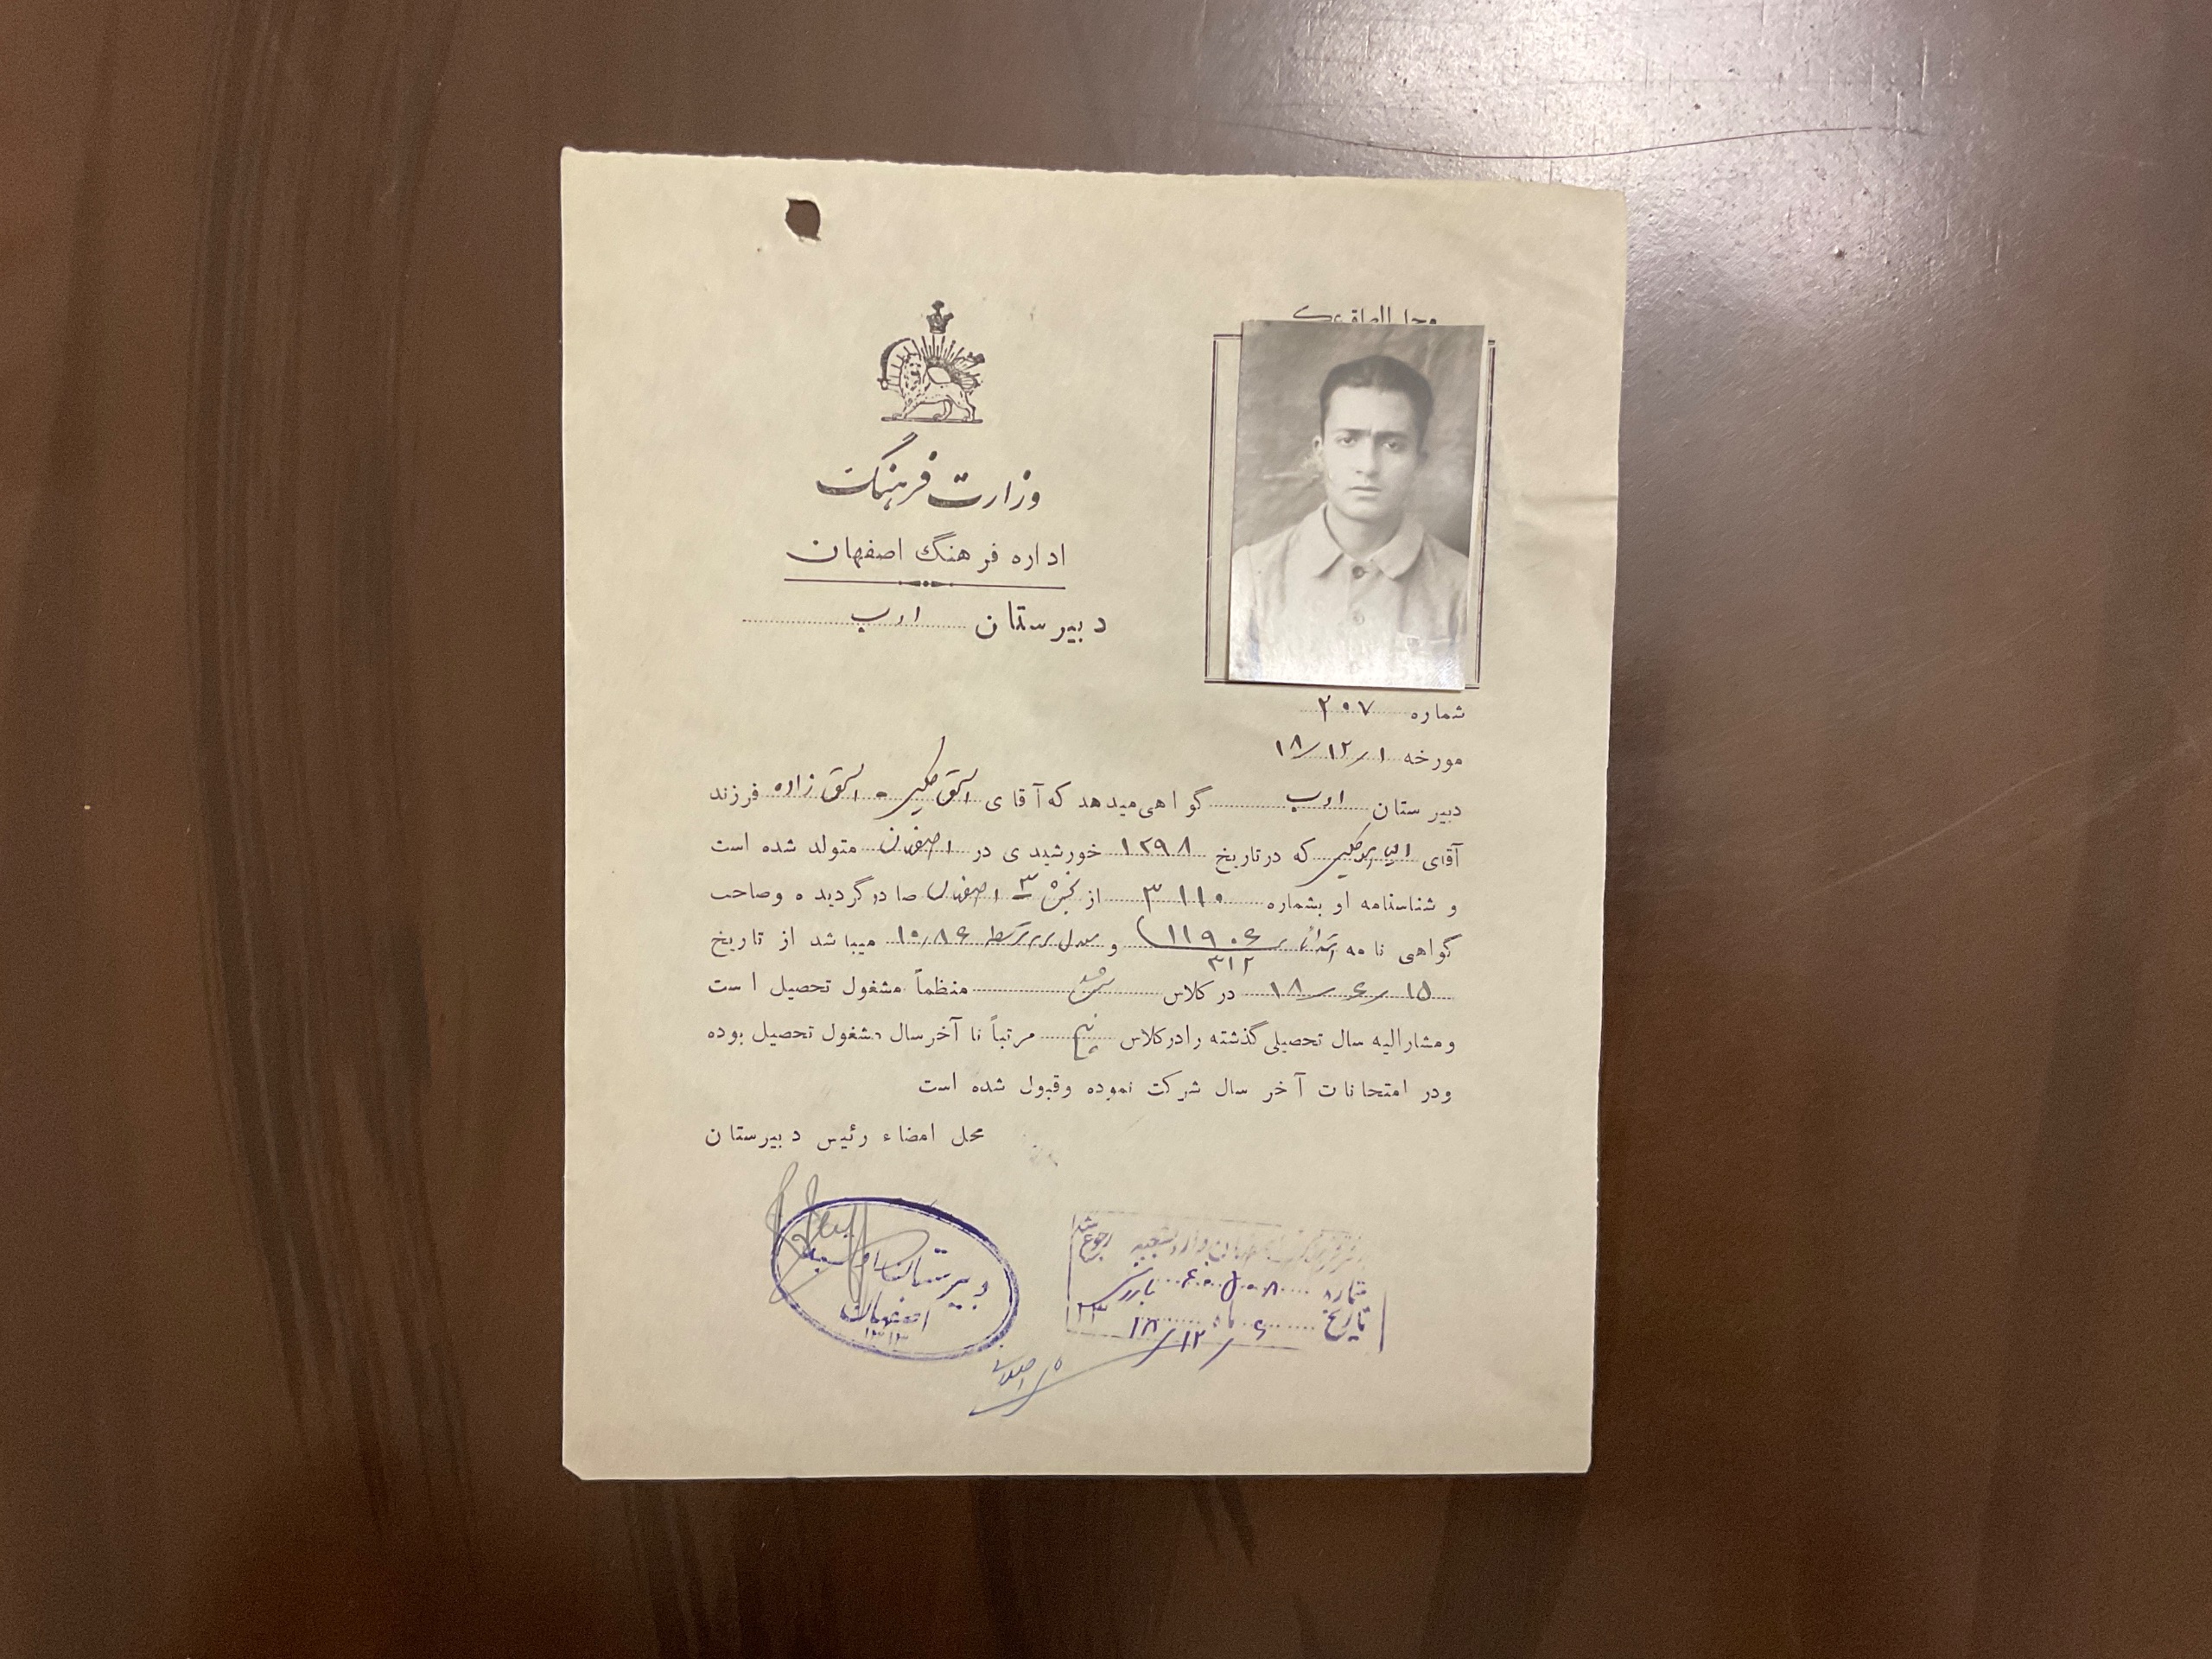 محل الصاق عکس
وزارت فرهنگ
اداره فرهنگ اصفهان
دبیرستان ادب
شماره ۲۰۷
مورخه ۱۸/۱۲/۱
دبیرستان ادب گواهی میدهد که آقای اسحق حکیمی - اسحق زاده فرزند
آقای حکیمی که در تاریخ ۱۲۹۸ خورشیدی در اصفهان متولد شده است
و شناسنامه او بشماره ۳۱۱۰ از بخش ۳ اصفهان صادر گردیده و صاحب
گواهی نامه ۱۱۹۰۶ / ۳۱۲ و معدل ۱۰٫۸۶ میباشد از تاریخ
۱۸/۶/۱۵ در کلاس ششم منظماً مشغول تحصیل است
و مشارالیه سال تحصیلی گذشته را در کلاس پنجم مرتباً تا آخر سال مشغول تحصیل بوده
و در امتحانات آخر سال شرکت نموده و قبول شده است
محل امضاء رئیس دبیرستان
دبیرستان ادب
اصفهان
۱۳۱۳
رجوع شد
شماره ۶۰۵۰۸
تاریخ ۶ ماه
۱۸/۱۲/۶